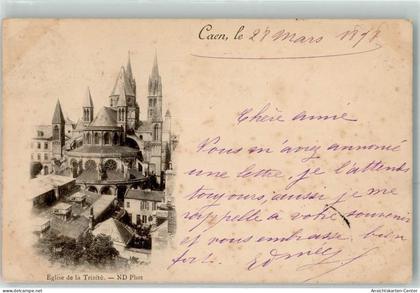 Caen, le 28 Mars 1898
Chère amie
Vous m'avez annoncé
une lettre, je l'attends
toujours, aussi je me
rappelle à votre souvenir
et vous embrasse bien
fort.
Eglise de la Trinité. — ND Phot
www.ansichtskartenversand.com
Ansichtskarten-Center